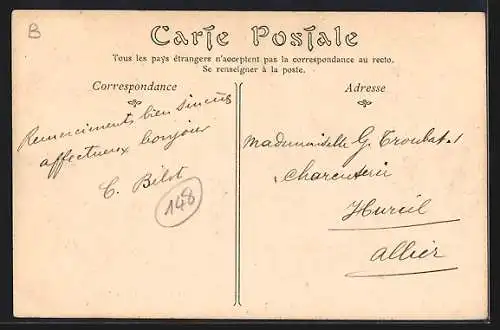 B
Carte Postale
Tous les pays étrangers n'acceptent pas la correspondance au recto.
Se renseigner à la poste.
Correspondance
Adresse
Remerciments bien sincères
affectueux bonjour
Bilot
148
Mademoiselle G. Troubat
Charcuterie
Huriel
Allier